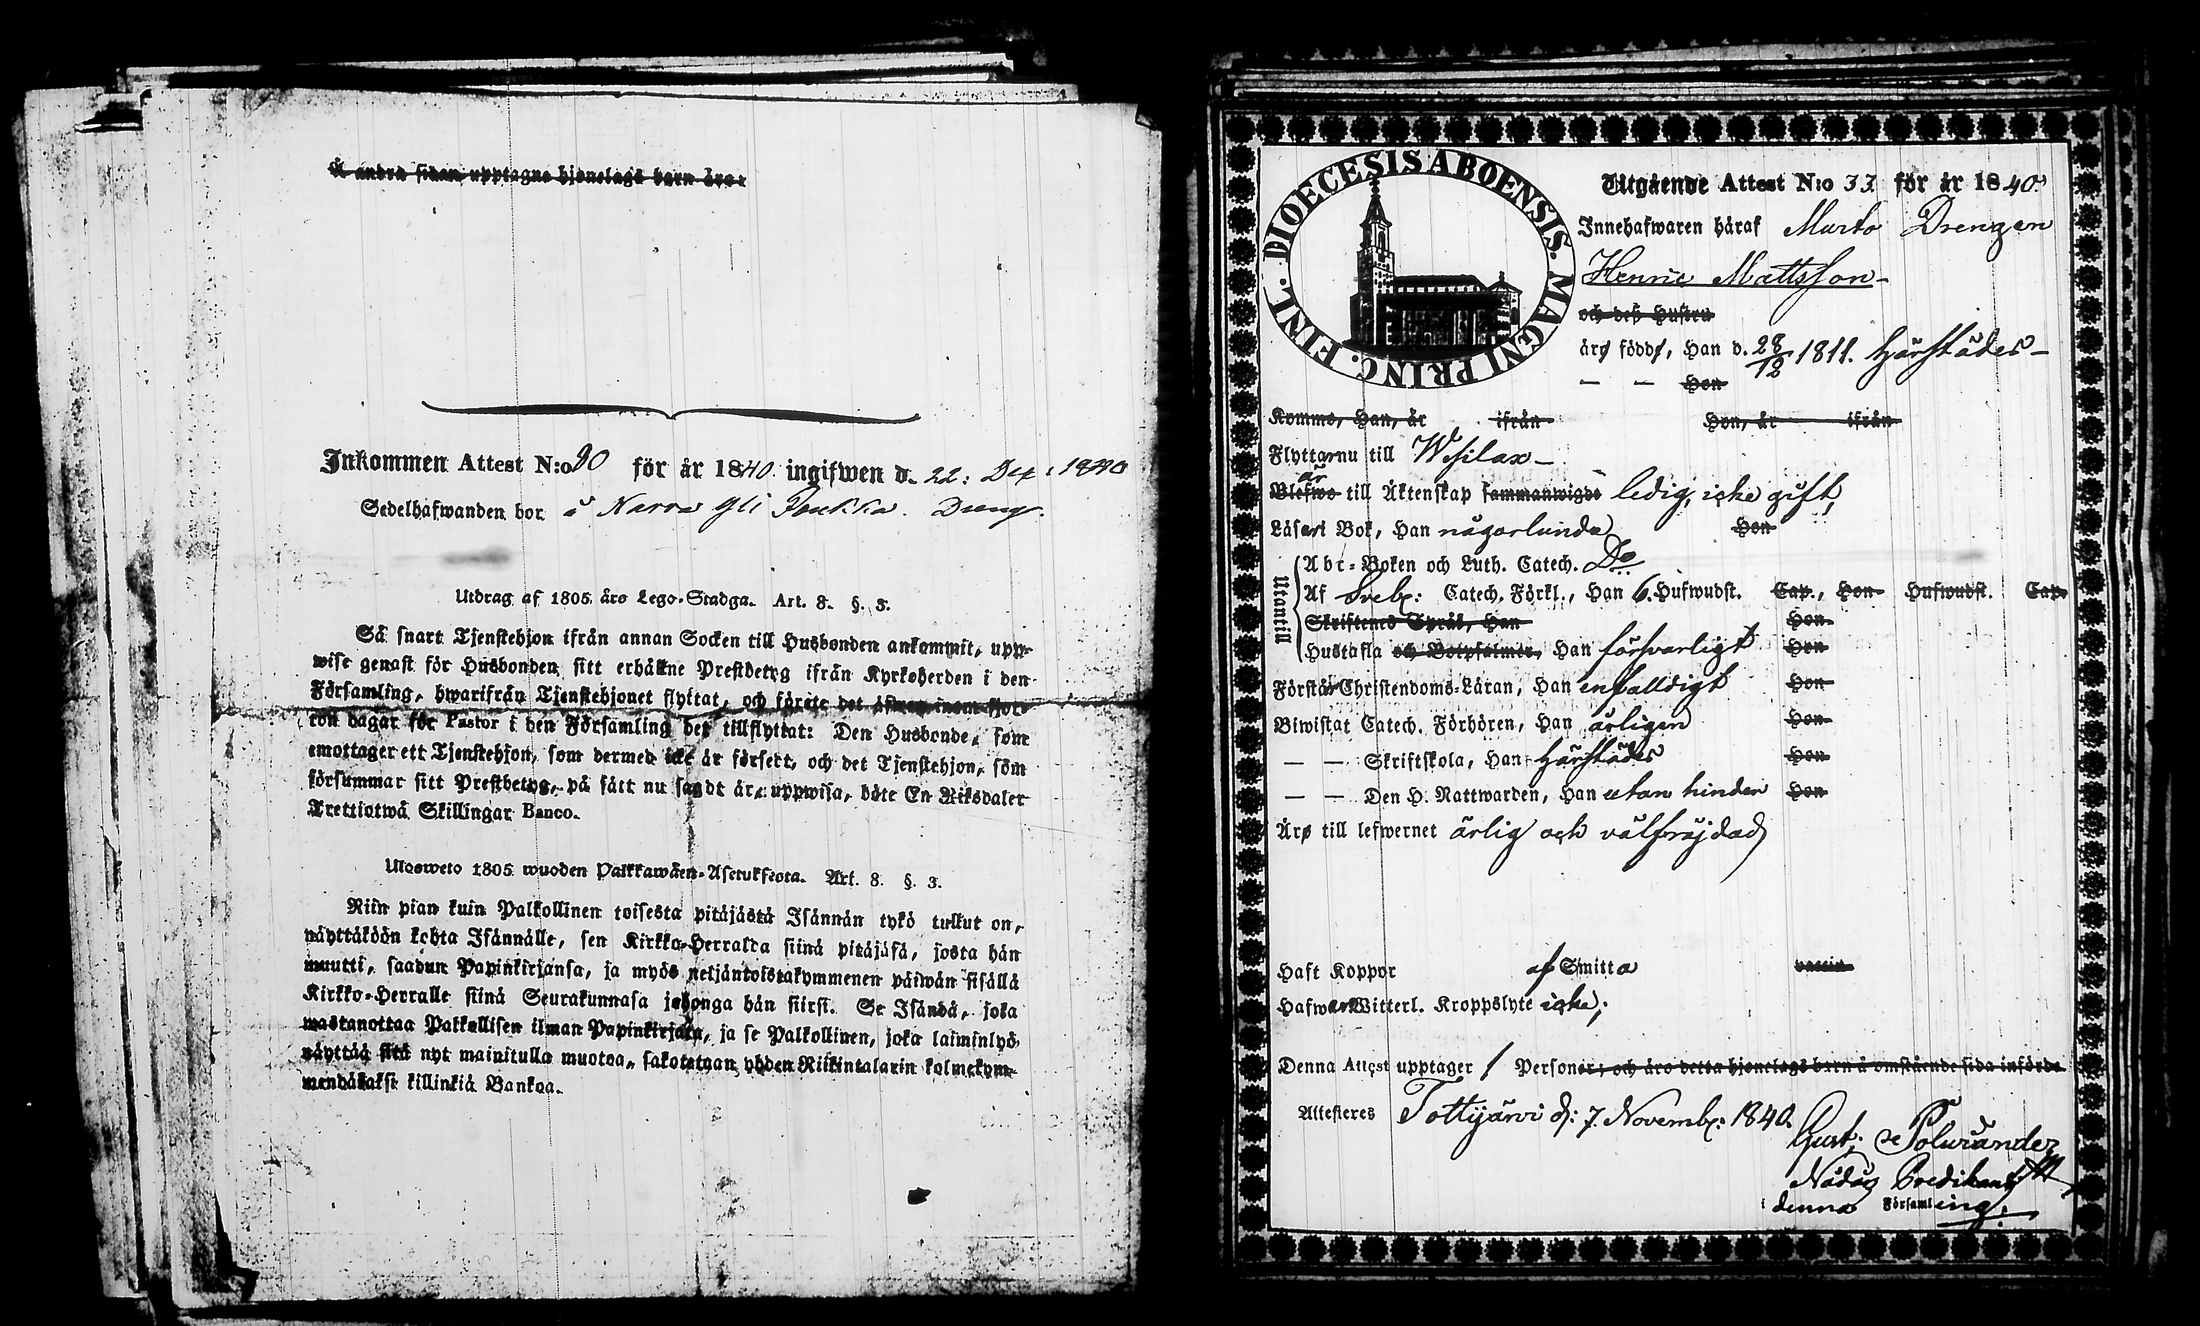 Å andra sidan upptagne hjonelags barn äro:
Inkommen Attest N:o 90 för år 1840 ingifwen d. 22: Dec: 1840
Sedelhafwanden bor i Narva Yli Dreng.
Utdrag af 1805 års Lego-Stadga. Art. 8. §. 3.
Så snart Tjenstehjon ifrån annan Socken till Husbonden ankommit, upp-
wise genast för Husbonden sitt erhållne Prestbetyg ifrån Kyrkoherden i den
Församling, hwarifrån Tjenstehjonet flyttat, och förete det äfwen inom fjor-
ton dagar för Pastor i den Församling det tillflyttat: Den Husbonde, som
emottager ett Tjenstehjon, som dermed icke är försedt, och det Tjenstehjon, som
försummar sitt Prestbetyg, på sätt nu sagdt är, uppwisa, böte En Riksdaler
Trettiotwå Skillingar Banco.
Ulosweto 1805 wuoden Palkkawäen-Asetuksesta. Art. 8. §. 3.
Niin pian kuin Palkollinen toisesta pitäjästä Isännän tykö tullut on,
näyttäköön kohta Isännälle, sen Kirkko-Herralda siinä pitäjäsä, josta hän
muutti, saadun Papinkirjansa, ja myös neljäntoistakymmenen päiwän sisällä
Kirkko-Herralle siinä Seurakunnasa jehonga hän siirsi. Se Isändä, joka
wastanottaa Palkollisen ilman Papinkirjata, ja se Palkollinen, joka laiminlyö
näyttää sitä nyt mainitulla muotoa, sakotetaan yhden Riikintalarin kolmekym-
mendäkaksi killinkiä Bankoa.
DIOECESIS ABOENSIS. MAGNI PRINC. FINL.
Utgående Attest N:o 33 för år 1840
Innehafwaren häraf Murto Drengen
Henric Mattsson
och deß Hustru
äro födde, Han d. 28/12 1811. härstädes
— — Hon
Komme, Han, år ifrån Hon, år ifrån
Flyttar nu till Wesilax
är
Blefwo till Äktenskap sammanwigde ledig, icke gift,
Läser i Bok, Han någorlunda Hon
Utantill
Abc-Boken och Luth. Catech. Do
Af Sveb: Catech. Förkl., Han 6. Hufwudst. Cap., Hon Hufwudst. Cap.
Skriftenes Språk, Han Hon
Hustafla och Botpsalmer, Han försvarligt Hon
Förstår Christendoms-Läran, Han enfalldigt Hon
Biwistat Catech. Förhören, Han årligen Hon
— — Skriftskola, Han härstädes Hon
— — Den H. Nattwarden, Han utan hinder Hon
Äro till lefwernet ärlig och välfräjdad
Haft Koppor af Smitta vaccin
Hafwer Witterl. Kroppslyte icke;
Denna Attest upptager 1 Personer; och äro detta hjonelags barn å omstående sida införde
Attesteres Tottijärvi d: 7. Novemb: 1840.
Gust:
Nådåg Predikant
i denna Församling.